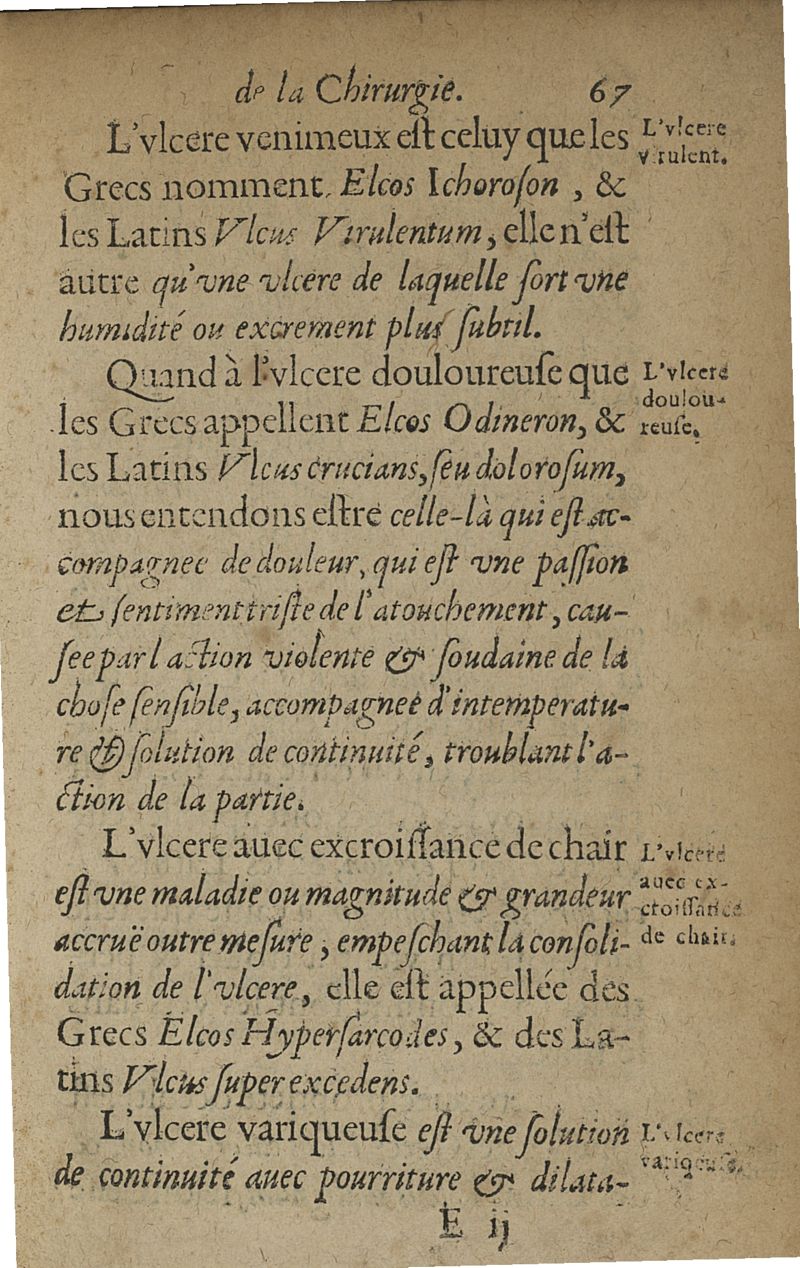 de la Chirurgie. 67
L'vlcere venimeux est celuy que les
Grecs nomment Elcos Ichoroson, &
les Latins Vlcus Virulentum, elle n'est
autre qu'vne vlcere de laquelle sort vne
humidité ou excrement plus subtil.
Quand à l'vlcere douloureuse que
les Grecs appellent Elcos Odineron, &
les Latins Vlcus crucians, seu dolorosum,
nous entendons estre celle-là qui est ac-
compagnee de douleur, qui est vne passion
et sentiment triste de l'atouchement, cau-
see par l action violente & soudaine de la
chose sensible, accompagneé d'intemperatu-
re & solution de continuité, troublant l'a-
ction de la partie.
L'vlcere auec excroissance de chair
est vne maladie ou magnitude & grandeur
accruë outre mesure, empeschant la consoli-
dation de l'vlcere, elle est appellée des
Grecs Elcos Hypersarcodes, & des La-
tins Vlcus super excedens.
L'vlcere variqueuse est vne solution
de continuité auec pourriture & dilata-
E ij
L'vlcere
virulent.
L'vlcere
doulou-
reuse.
L'vlcere
auec ex-
croissance
de chair.
L'vlcere
variqueuse.